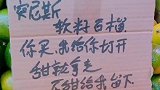 突尼斯
软籽石榴
你买我给你切开
甜就拿走
不甜给我留下